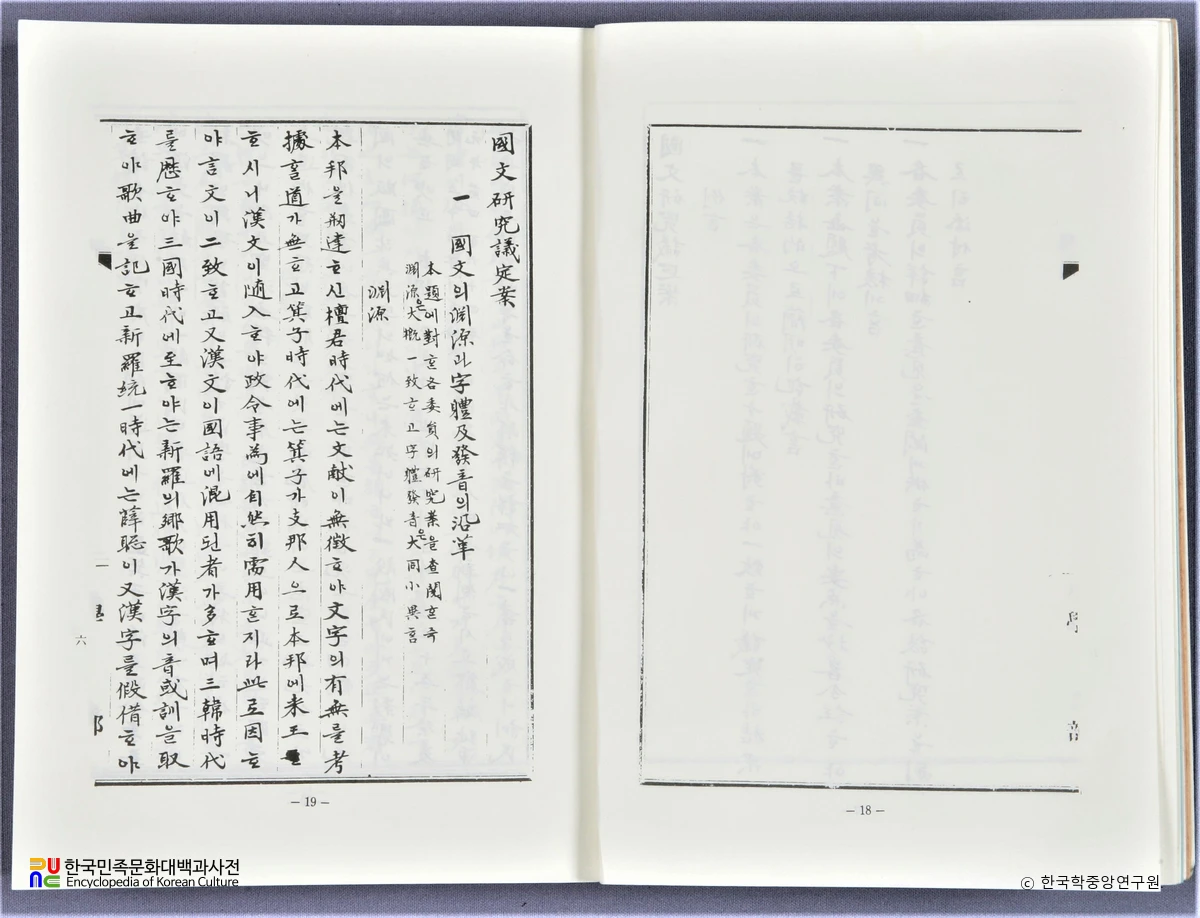 國文研究議定案
一 國文의淵源과字體及發音의沿革
本題에對ᄒᆞᆫ各委員의硏究案을査閱ᄒᆞᆫ즉
淵源은大槪一致ᄒᆞ고字體發音은大同小異홈
淵源
本邦을刱建ᄒᆞ신檀君時代에는文献이無徵ᄒᆞ야文字의有無를考
據ᄒᆞᆯ道가無ᄒᆞ고箕子時代에는箕子가支那人으로本邦에来王
ᄒᆞ시니漢文이随入ᄒᆞ야政令事爲에自然히需用ᄒᆞᆫ지라此로因ᄒᆞ
야言文이二致ᄒᆞ고又漢文이國語에混用된者가多ᄒᆞ며三韓時代
를歷ᄒᆞ야三國時代에至ᄒᆞ야는新羅의鄕歌가漢字의音或訓을取
ᄒᆞ야歌曲을記ᄒᆞ고新羅統一時代에는薛聰이又漢字를假借ᄒᆞ야
六
– 19 –
– 18 –
한국민족문화대백과사전
Encyclopedia of Korean Culture
© 한국학중앙연구원